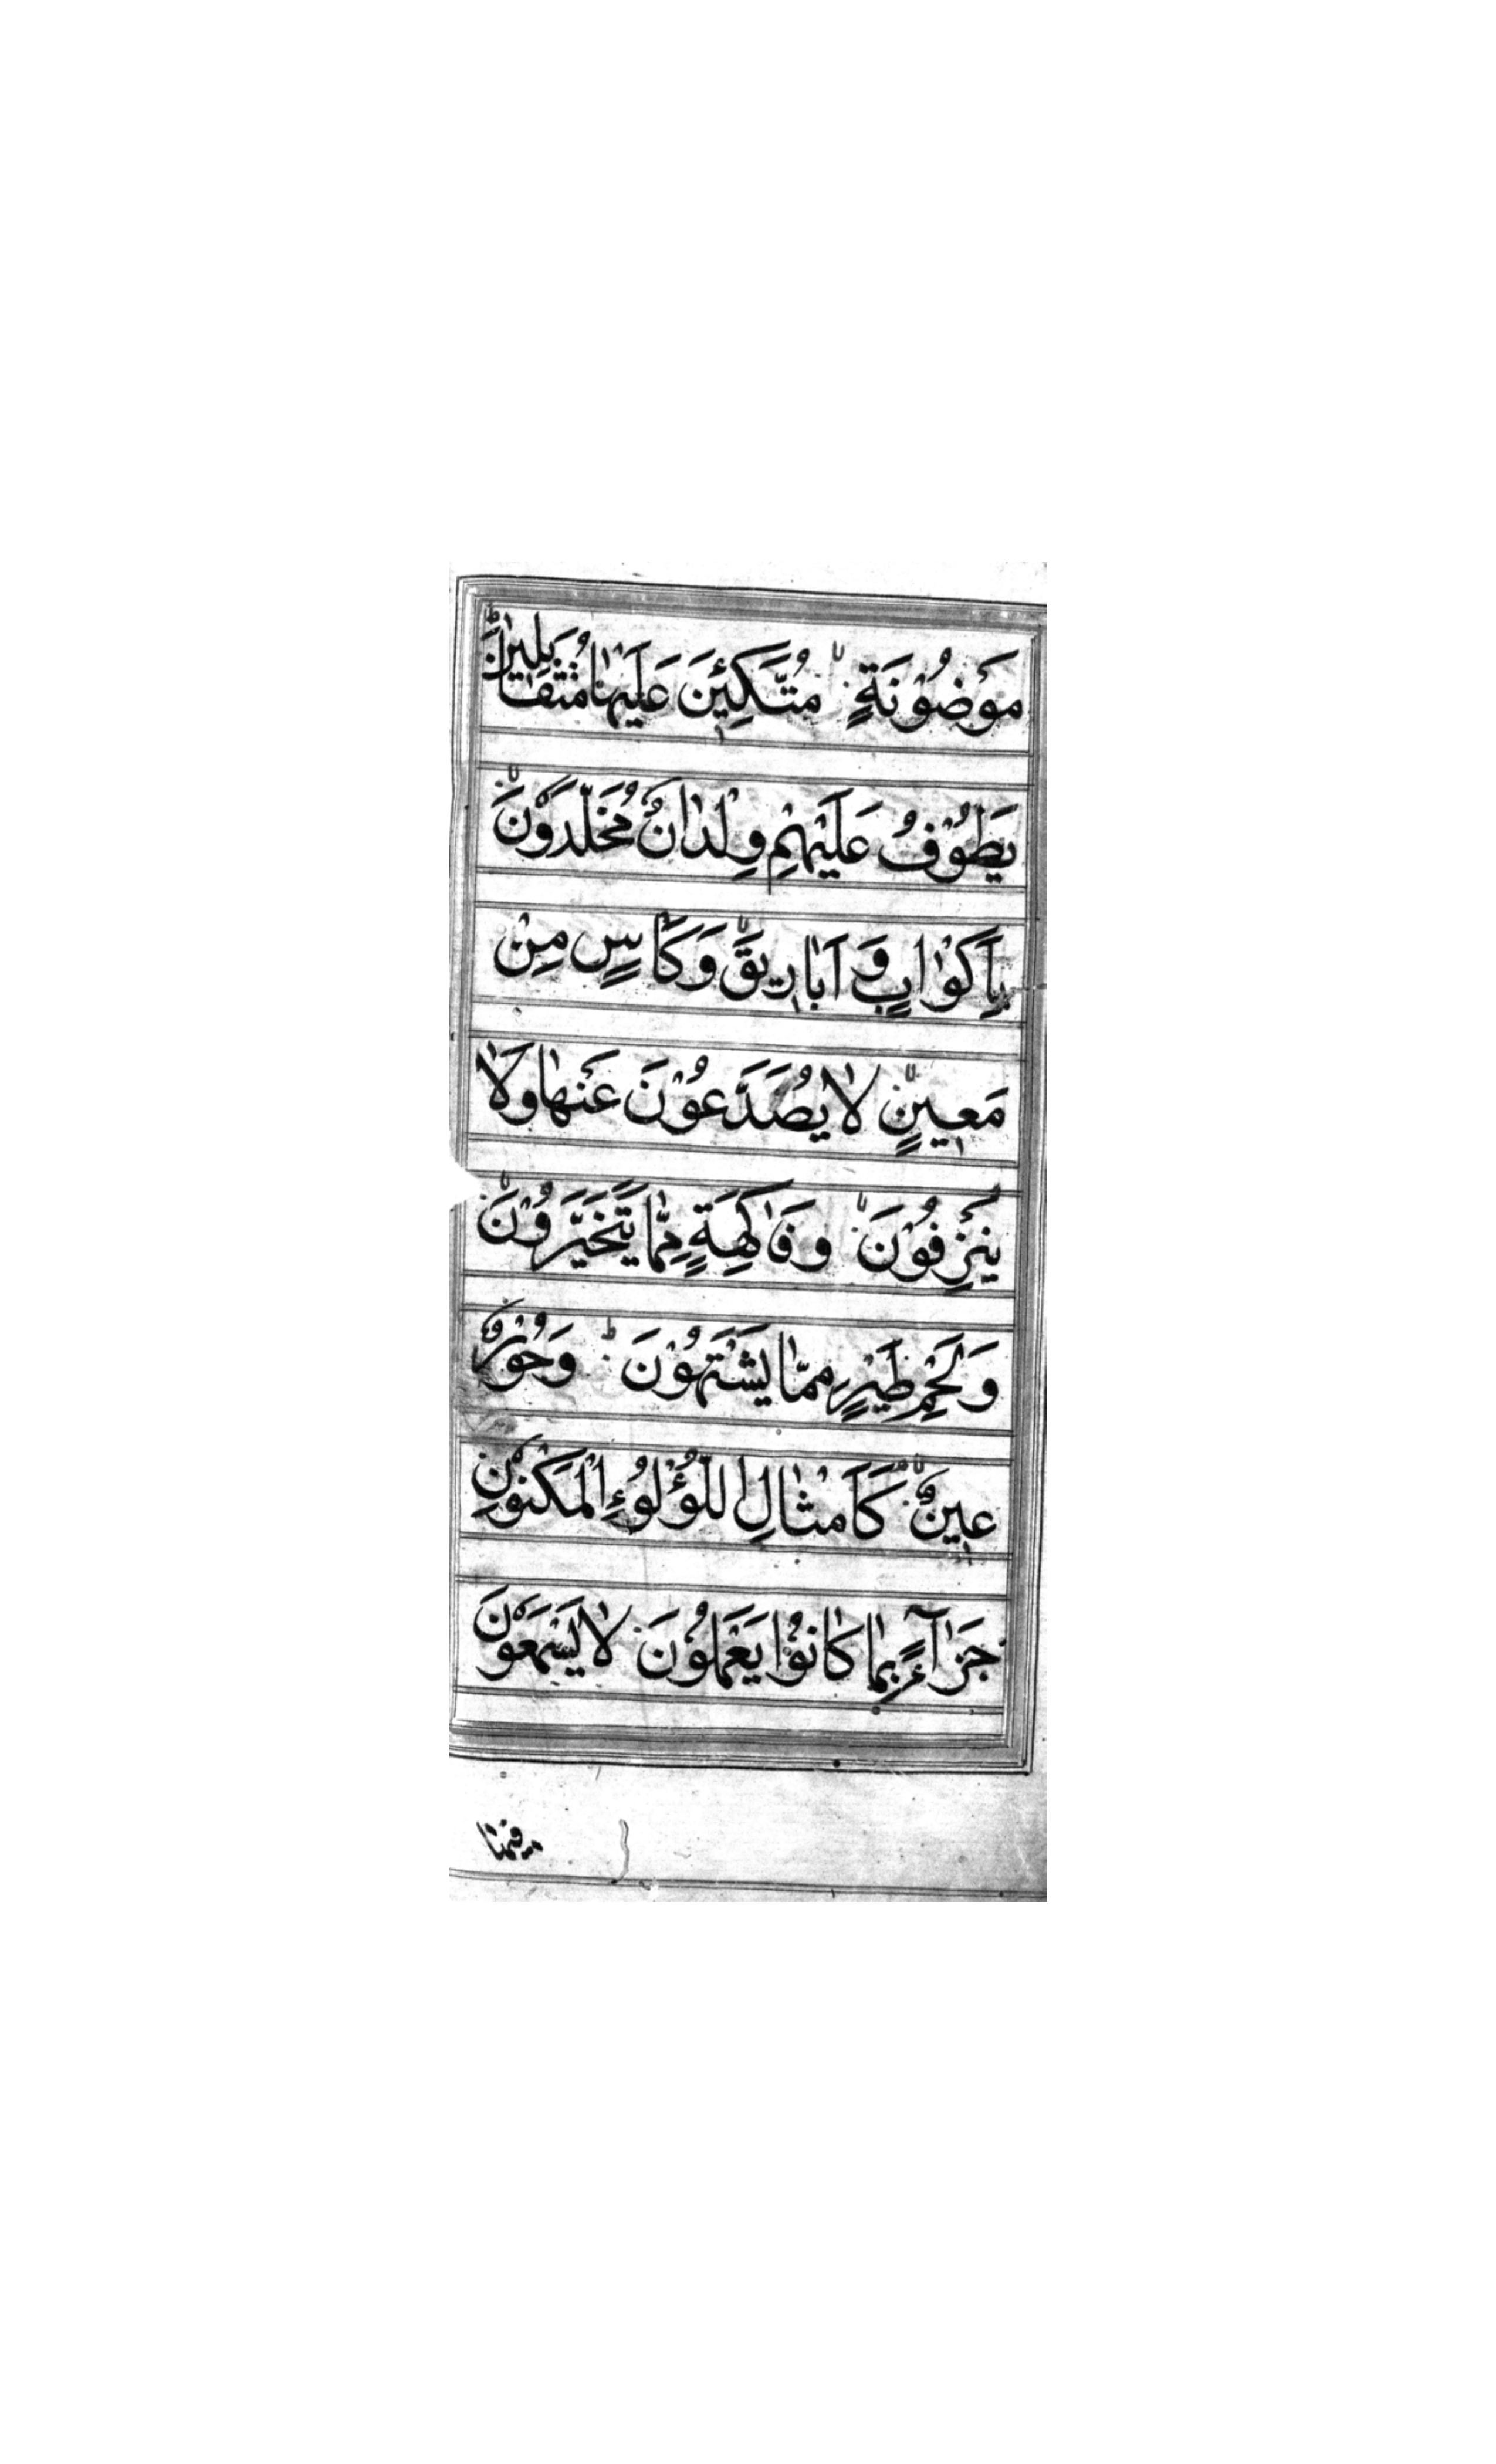 مَوْضُوْنَةٍ مُتَّكِئِيْنَ عَلَيْهَا مُتَقٰبِلِيْنَ
يَطُوْفُ عَلَيْهِمْ وِلْدَانٌ مُخَلَّدُوْنَ
بِاَكْوَابٍ وَّ اَبَارِيْقَ وَكَاْسٍ مِنْ
مَعِيْنٍ لَا يُصَدَّعُوْنَ عَنْهَا وَلَا
يُنْزِفُوْنَ وَفَاكِهَةٍ مِّمَّا يَتَخَيَّرُوْنَ
وَلَحْمِ طَيْرٍ مِمَّا يَشْتَهُوْنَ وَحُوْرٌ
عِيْنٌ كَاَمْثَالِ اللُّؤْلُوءِ الْمَكْنُوْنِ
جَزَآءً بِمَا كَانُوْا يَعْمَلُوْنَ لَا يَسْمَعُوْنَ
فيها